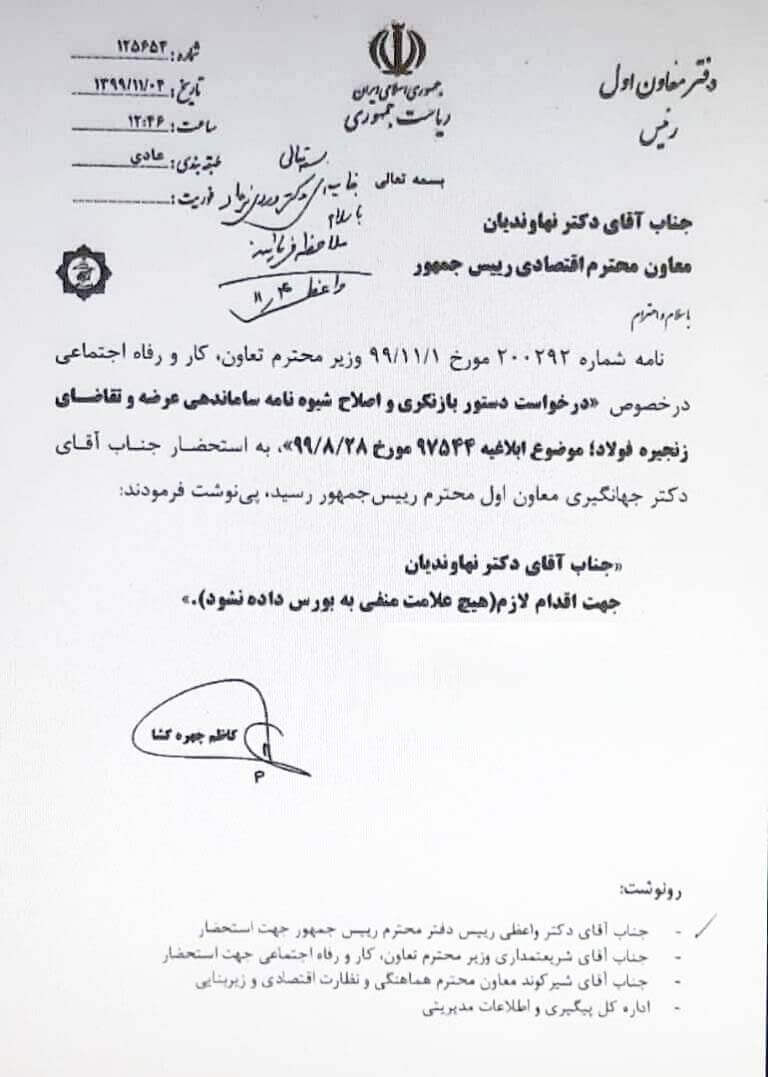 جمهوری اسلامی ایران
ریاست جمهوری
دفتر معاون اول
رئیس
شماره: ۱۲۵۶۵۴
تاریخ: ۱۳۹۹/۱۱/۰۴
ساعت: ۱۲:۴۶
طبقه بندی: عادی
فوریت:
بسمه تعالی
بسمه تعالی
جناب آقای دکتر
با سلام
ملاحظه فرمایید
واعظی ۱۱/۴
جناب آقای دکتر نهاوندیان
معاون محترم اقتصادی رییس جمهور
با سلام و احترام
نامه شماره ۲۰۰۲۹۲ مورخ ۹۹/۱۱/۱ وزیر محترم تعاون، کار و رفاه اجتماعی
درخصوص «درخواست دستور بازنگری و اصلاح شیوه نامه ساماندهی عرضه و تقاضای
زنجیره فولاد؛ موضوع ابلاغیه ۹۷۵۴۴ مورخ ۹۹/۸/۲۸»، به استحضار جناب آقای
دکتر جهانگیری معاون اول محترم رییس‌جمهور رسید، پی‌نوشت فرمودند:
«جناب آقای دکتر نهاوندیان
جهت اقدام لازم(هیچ علامت منفی به بورس داده نشود).»
کاظم چهره کشا
رونوشت:
- جناب آقای دکتر واعظی رییس دفتر محترم رییس جمهور جهت استحضار
- جناب آقای شریعتمداری وزیر محترم تعاون، کار و رفاه اجتماعی جهت استحضار
- جناب آقای شیرکوند معاون محترم هماهنگی و نظارت اقتصادی و زیربنایی
- اداره کل پیگیری و اطلاعات مدیریتی